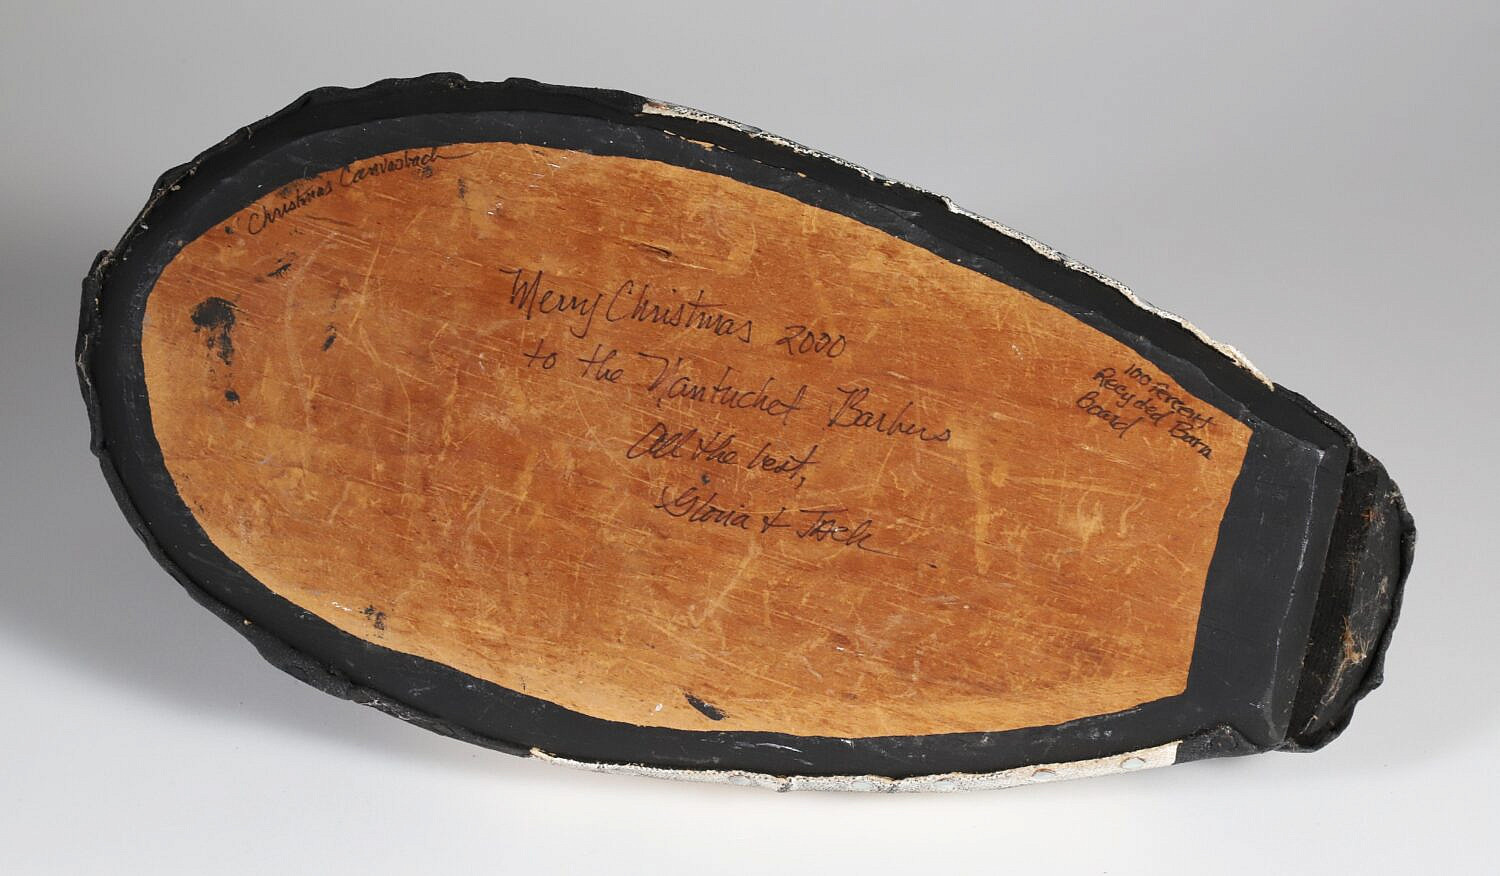 Christmas Canvasback
Merry Christmas 2000
to the Nantucket Barbers
All the best,
Gloria & Jack
100 Percent
Recycled Barn
Board